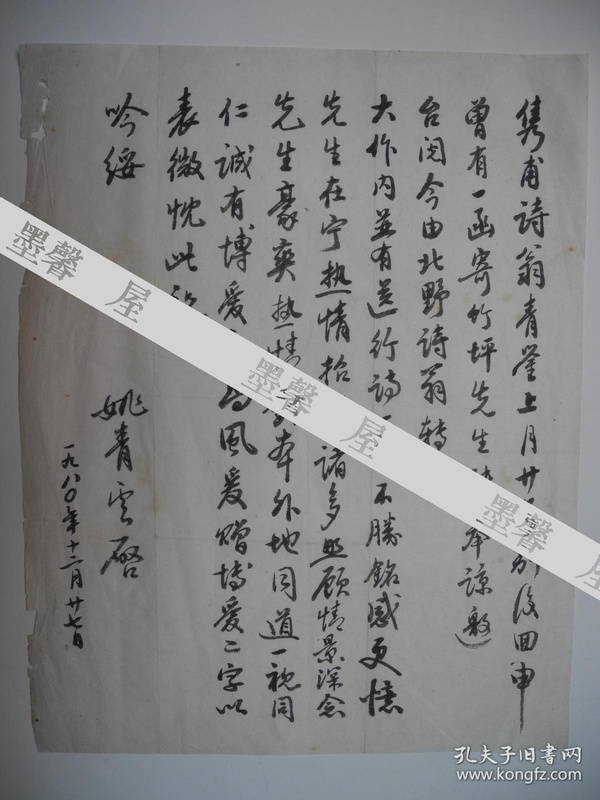 隽甫詩翁青鉴上月廿别後回申
曾有一函寄竹坪先生转奉諒邀
台阅今由北野詩翁轉
大作内并有送行詩一不勝銘感更憶
先生在宁热情招諸多照顾情景深念
先生豪爽热情本外地同道一視同
仁誠有博爱風爰赠博爱二字以
表微忱此
吟绥
姚青云啓
一九八〇年十二月廿七日
墨馨 屋
墨馨 屋
墨馨 屋
孔夫子旧书网
www.kongfz.com